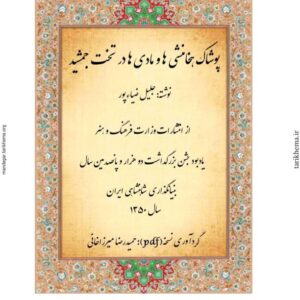 پوشاک هخامنشی ها و مادی ها در تخت جمشید
نوشته: جلیل ضیاءپور
از انتشارات وزارت فرهنگ و هنر
یادبود جشن بزرگداشت دو هزار و پانصدمین سال
بنیانگذاری شاهنشاهی ایران
سال ۱۳۵۰
گردآوری نسخهٔ (pdf): حمیدرضا میرزاخانی
mandegar.tarikhema.org
tarikhema.ir